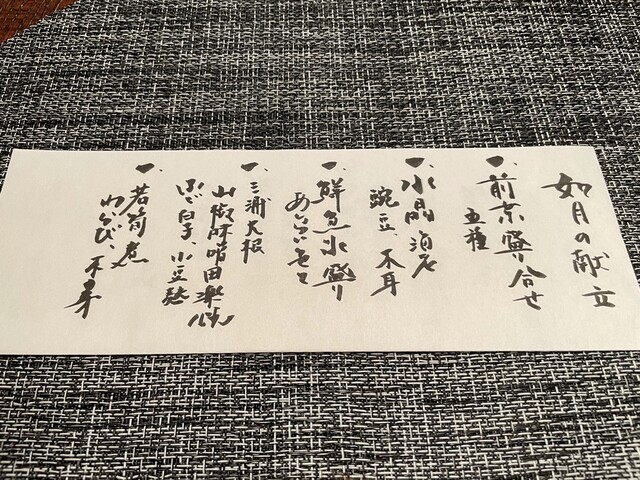 如月の献立
一、前菜盛り合せ
五種
一、水晶
豌豆、木耳
一、鮮魚氷盛り
あしらいそえて
一、三浦大根
山椒味噌田楽焼
ふぐ白子、小豆麩
一、若筍煮
わらび、木の芽